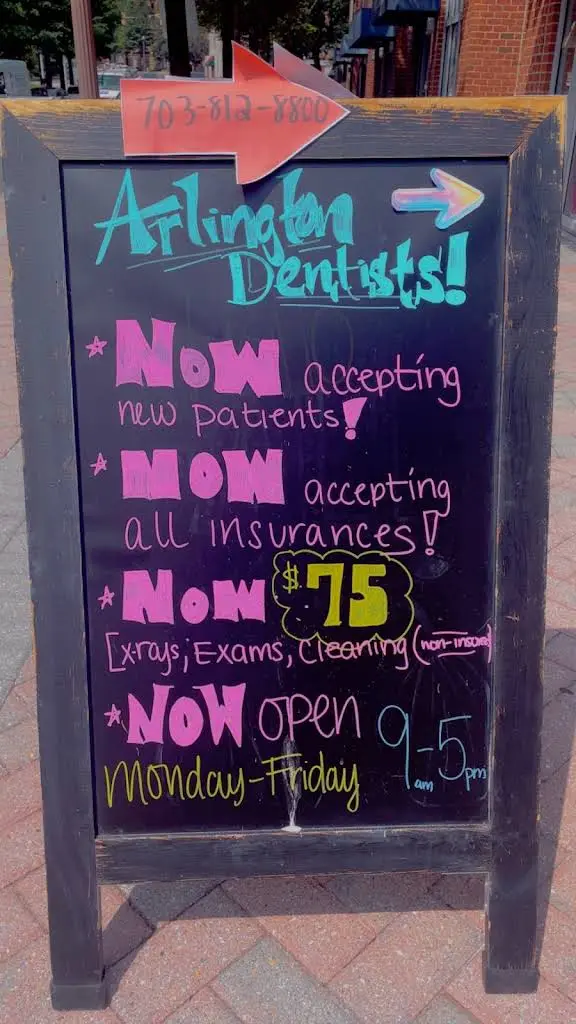 703-812-8800
Arlington
Dentists!
* NOW accepting
new patients!
* NOW accepting
all insurances!
* NOW $75
[x-rays, Exams, Cleaning (non-insure)
* NOW open 9am-5pm
Monday-Friday